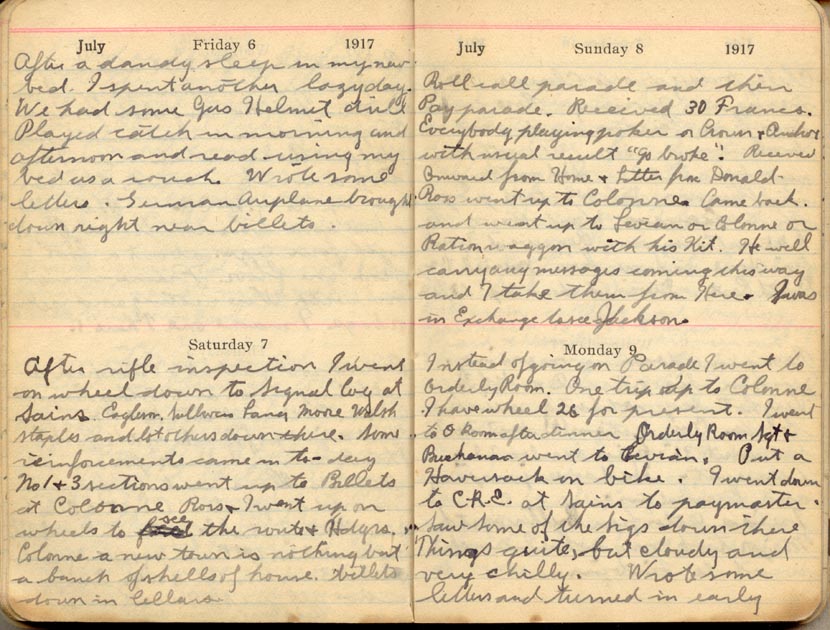 July Friday 6 1917
After a dandy sleep in my new
bed. I spent another lazy day.
We had some Gas Helmet drill
Played catch in morning and
afternoon and read using my
bed as a couch. Wrote some
letters. German Airplane brought
down right near billets.
Saturday 7
After rifle inspection I went
on wheel down to Signal Coy at
Sains. Moore Walsh
Staples and lot others down there. Some
reinforcements came in to-day
No 1 & 3 sections went up to Billets
at Colonne Ross & I went up on
wheels to see the route & Hdqrs.
Colonne a new town is nothing but
a bunch of shells of house. billets
down in Cellars
July Sunday 8 1917
Roll call parade and then
Pay parade. Received 30 Francs.
Everybody playing poker or Crown & Anchor
with usual result "Go broke". Received
Onward from Home & Letter from Donald.
Ross went up to Colonne. Came back.
and went up to Levian or Colonne on
Ration waggon with his Kit. He will
carry any messages coming this way
and I take them from Here. I was
in Exchange to see Jackson.
Monday 9
Instead of going on Parade I went to
Orderly Room. One trip up to Colonne
I have wheel 26 for present. I went
to O Room after dinner Orderly Room Sgt &
Buchanan went to Levian. Put a
Haversack on bike. I went down
to C.R.E. at Sains to paymaster.
Saw some of the Sigs down there
Things quite, but cloudy and
very chilly. Wrote some
letters and turned in early